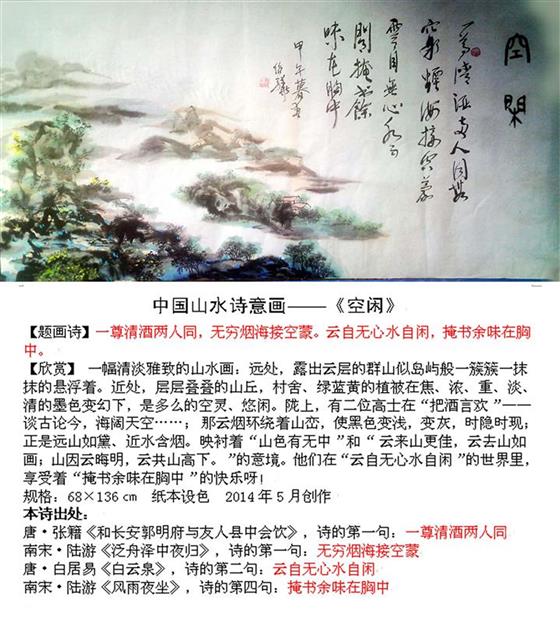 空閑
一尊清酒两人同無
窮煙海接空蒙
雲自無心水自
閒掩書餘
味在胸中
甲午暮春
中国山水诗意画——《空闲》
【题画诗】一尊清酒两人同，无穷烟海接空蒙。云自无心水自闲，掩书余味在胸
中。
【欣赏】 一幅清淡雅致的山水画：远处，露出云层的群山似岛屿般一簇簇一抹
抹的悬浮着。近处，层层叠叠的山丘，村舍、绿蓝黄的植被在焦、浓、重、淡、
清的墨色变幻下，是多么的空灵、悠闲。陇上，有二位高士在“把酒言欢”——
谈古论今，海阔天空……； 那云烟环绕着山峦，使黑色变浅，变灰，时隐时现；
正是远山如黛、近水含烟。映衬着“山色有无中”和“云来山更佳，云去山如
画；山因云晦明，云共山高下。”的意境。他们在“云自无心水自闲”的世界里，
享受着“掩书余味在胸中”的快乐呀！
规格：68×136 cm 纸本设色 2014 年 5 月创作
本诗出处：
唐·张籍《和长安郭明府与友人县中会饮》，诗的第一句：一尊清酒两人同
南宋·陆游《泛舟泽中夜归》，诗的第一句：无穷烟海接空蒙
唐·白居易《白云泉》，诗的第二句：云自无心水自闲
南宋·陆游《风雨夜坐》，诗的第四句：掩书余味在胸中